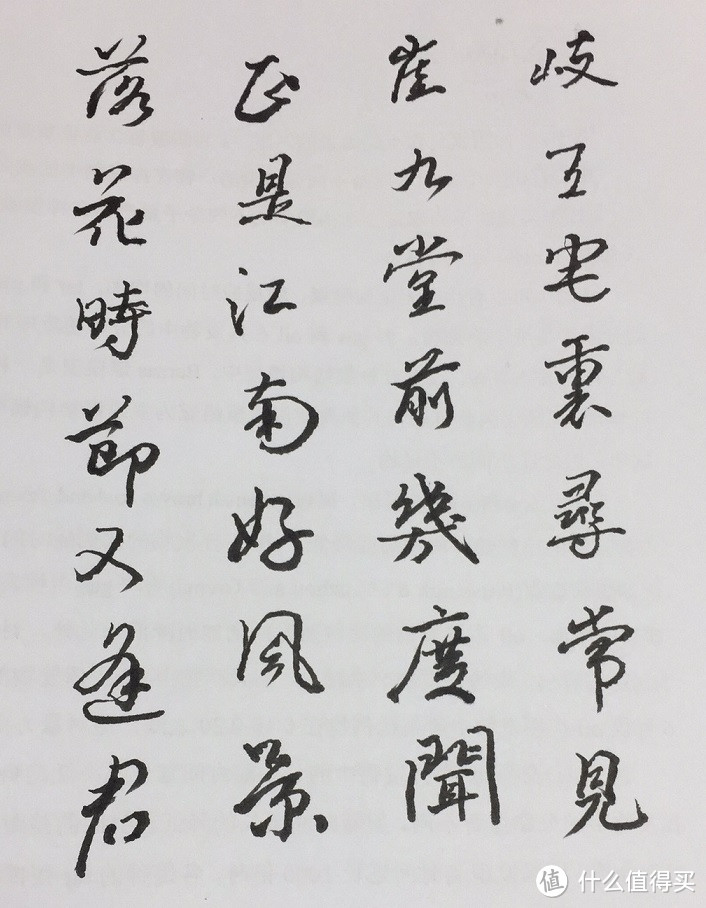 岐王宅裏尋常見
崔九堂前幾度聞
正是江南好風景
落花時節又逢君
值 什么值得买